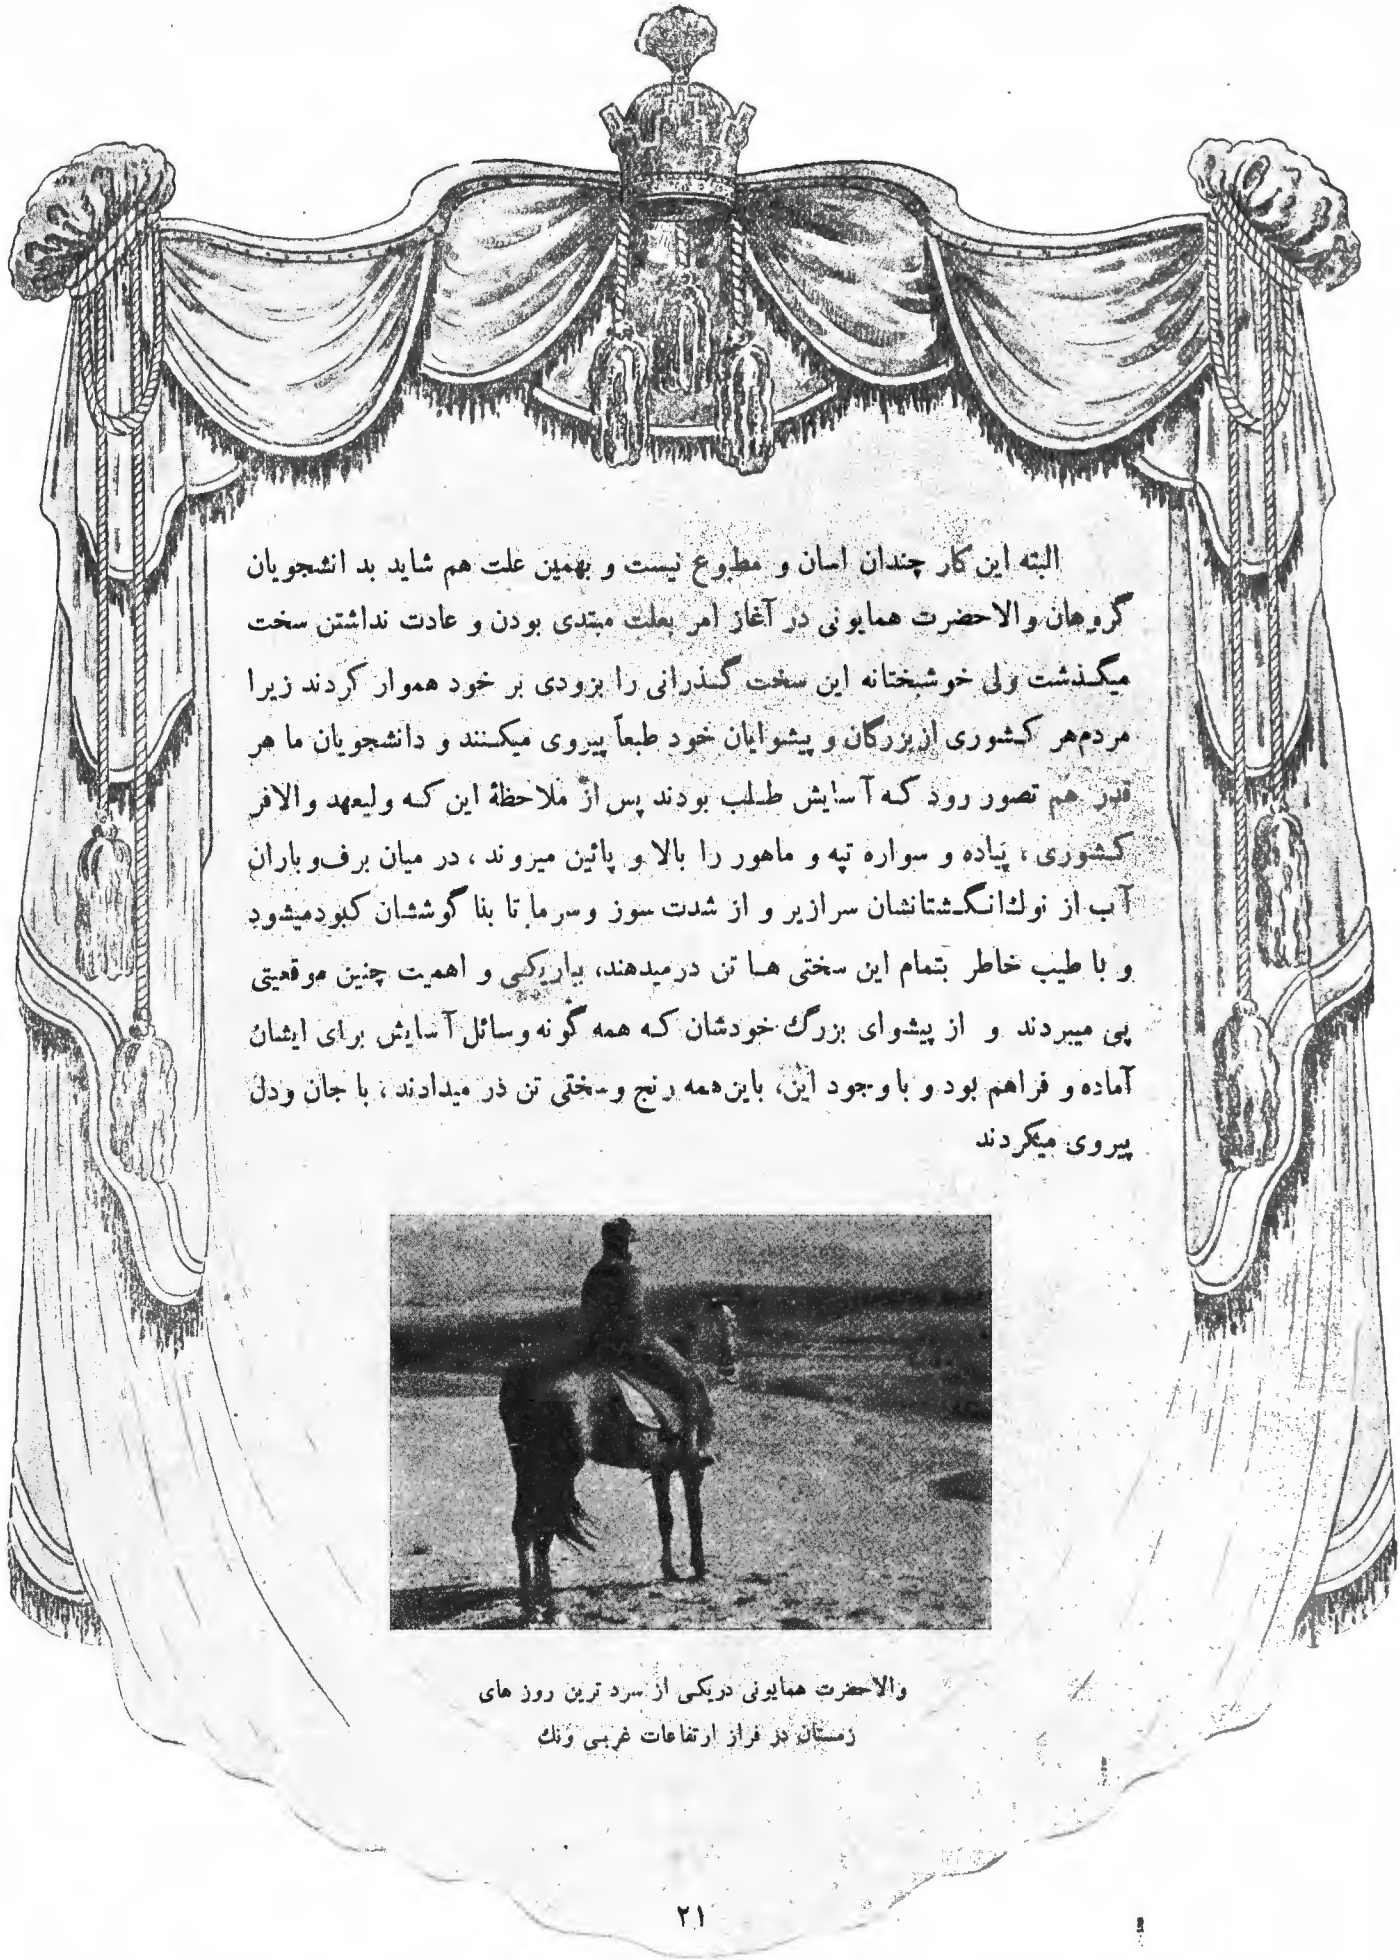 البته این کار چندان اسان و مطبوع نیست و بهمین علت هم شاید بد انشجویان
گروهان والاحضرت همایونی در آغاز امر بعلت مبتدی بودن و عادت نداشتن سخت
میگذشت ولی خوشبختانه این سخت گذرانی را بزودی بر خود هموار کردند زیرا
مردم هر کشوری از بزرگان و پیشوایان خود طبعاً پیروی میکنند و دانشجویان ما هر
قدر هم تصور رود که آسایش طلب بودند پس از ملاحظهٔ این که ولیعهد والافر
کشوری ، پیاده و سواره تپه و ماهور را بالا و پائین میروند ، در میان برف و باران
آب از نوك انگشتانشان سرازیر و از شدت سوز و سرما تا بنا گوششان کبود میشود
و با طیب خاطر بتمام این سختی ها تن درمیدهند، بباریکی و اهمیت چنین موقعیتی
پی میبردند و از پیشوای بزرگ خودشان که همه گونه وسائل آسایش برای ایشان
آماده و فراهم بود و با وجود این، باین همه رنج و سختی تن در میدادند ، با جان و دل
پیروی میکردند
والاحضرت همایونی دریکی از سرد ترین روز های
زمستان در فراز ارتفاعات غربی ونك
۲۱